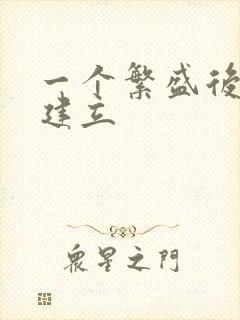 一个繁盛後
建立
衆星之門